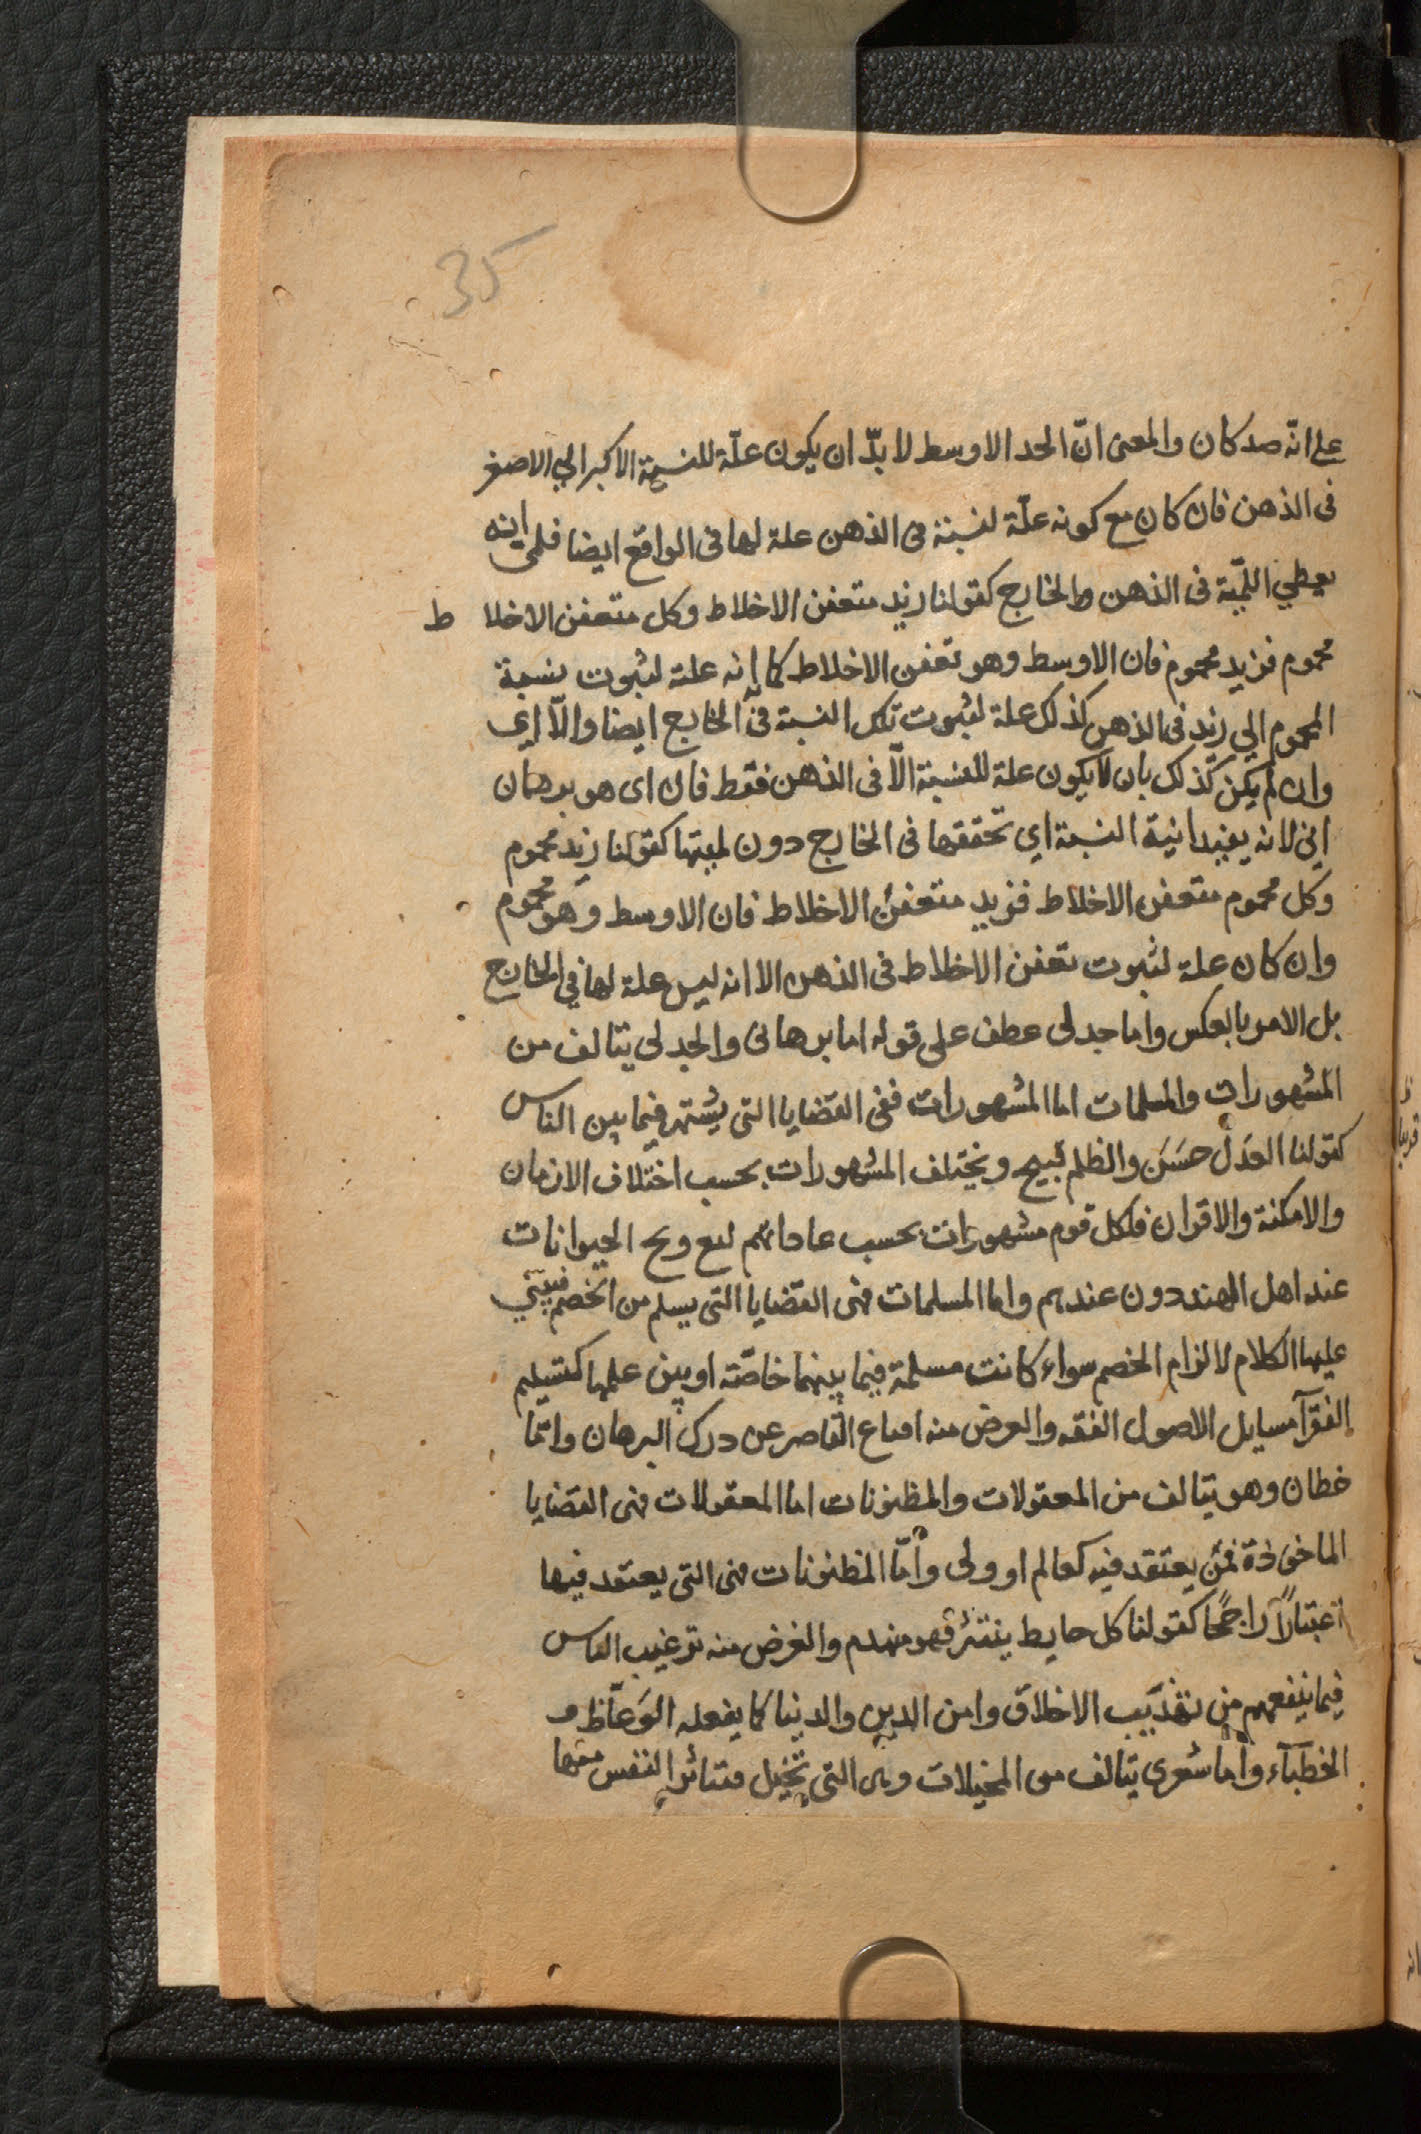 35
علی انّه صد كان والمعنی انّ الحد الاوسط لا بدّ ان يكون علّة للنسبة الاكبر الي الاصغر
فی الذهن فان كان مع كونه علّة لنسبة فی الذهن علة لها فی الواقع ايضا فلمی انه
يعطي اللمّية فی الذهن والخارج كقولنا زيد متعفن الاخلاط وكل متعفن الاخلا ط
محموم فزيد محموم فان الاوسط وهو تعفن الاخلاط كما انه علة لثبوت نسبة
المحموم الي زيد فی الذهن كذلك علة لثبوت تلك النسبة فی الخارج ايضا والّا اي
وان لم يكن كذلك بان لا يكون علة للنسبة الّا فی الذهن فقط فان ای هو برهان
اني لانه يفيد انية النسبة اي تحققها فی الخارج دون لميتها كقولنا زيد محموم
وكل محموم متعفن الاخلاط فزيد متعفن الاخلاط فان الاوسط وهو محموم
وان كان علة لثبوت تعفن الاخلاط فی الذهن الا انه ليس علة لها في الخارج
بل الامر بالعكس واما جدلی عطف علی قوله اما برهانی والجدلی يتالف من
المشهورات والمسلمات اما المشهورات ففی القضايا التی يشتهر فيما بين الناس
كقولنا العدل حسَن والظلم قبيح ويختلف المشهورات بحسب اختلاف الازمان
والامكنة والاقران فلكل قوم مشهورات بحسب عاداتهم الحيوانات
عند اهل الهند دون عندهم واما المسلمات فهی القضايا التی يسلم من الخصم فيبنی
عليها الكلام لالزام الخصم سواء كانت مسلمة فيما بينهما خاصّة او بين علمها كتسليم
الفقرآ مسايل الاصول الفقه والغرض منه اقناع القاصر عن درك البرهان وامّا
خطان وهو يتالف من المعقولات والمظنونات اما المعقولات فهی القضايا
الماخوذة فمن يعتقد فيه كعالم او ولی وأمّا المظنونات فهی التی يعتقد فيها
اعتبارًا راجحًا كقولنا كل حايط ينتثر فهو منهدم والغرض منه ترغيب الناس
فيما ينفعهم من تهذيب الاخلاق وامن الدين والدنيا كما يفعله الوَعّاظ و
الخطبآء وأما شعری يتالف من المخيلات وهی التی تخيل فتتأثر النفس منها